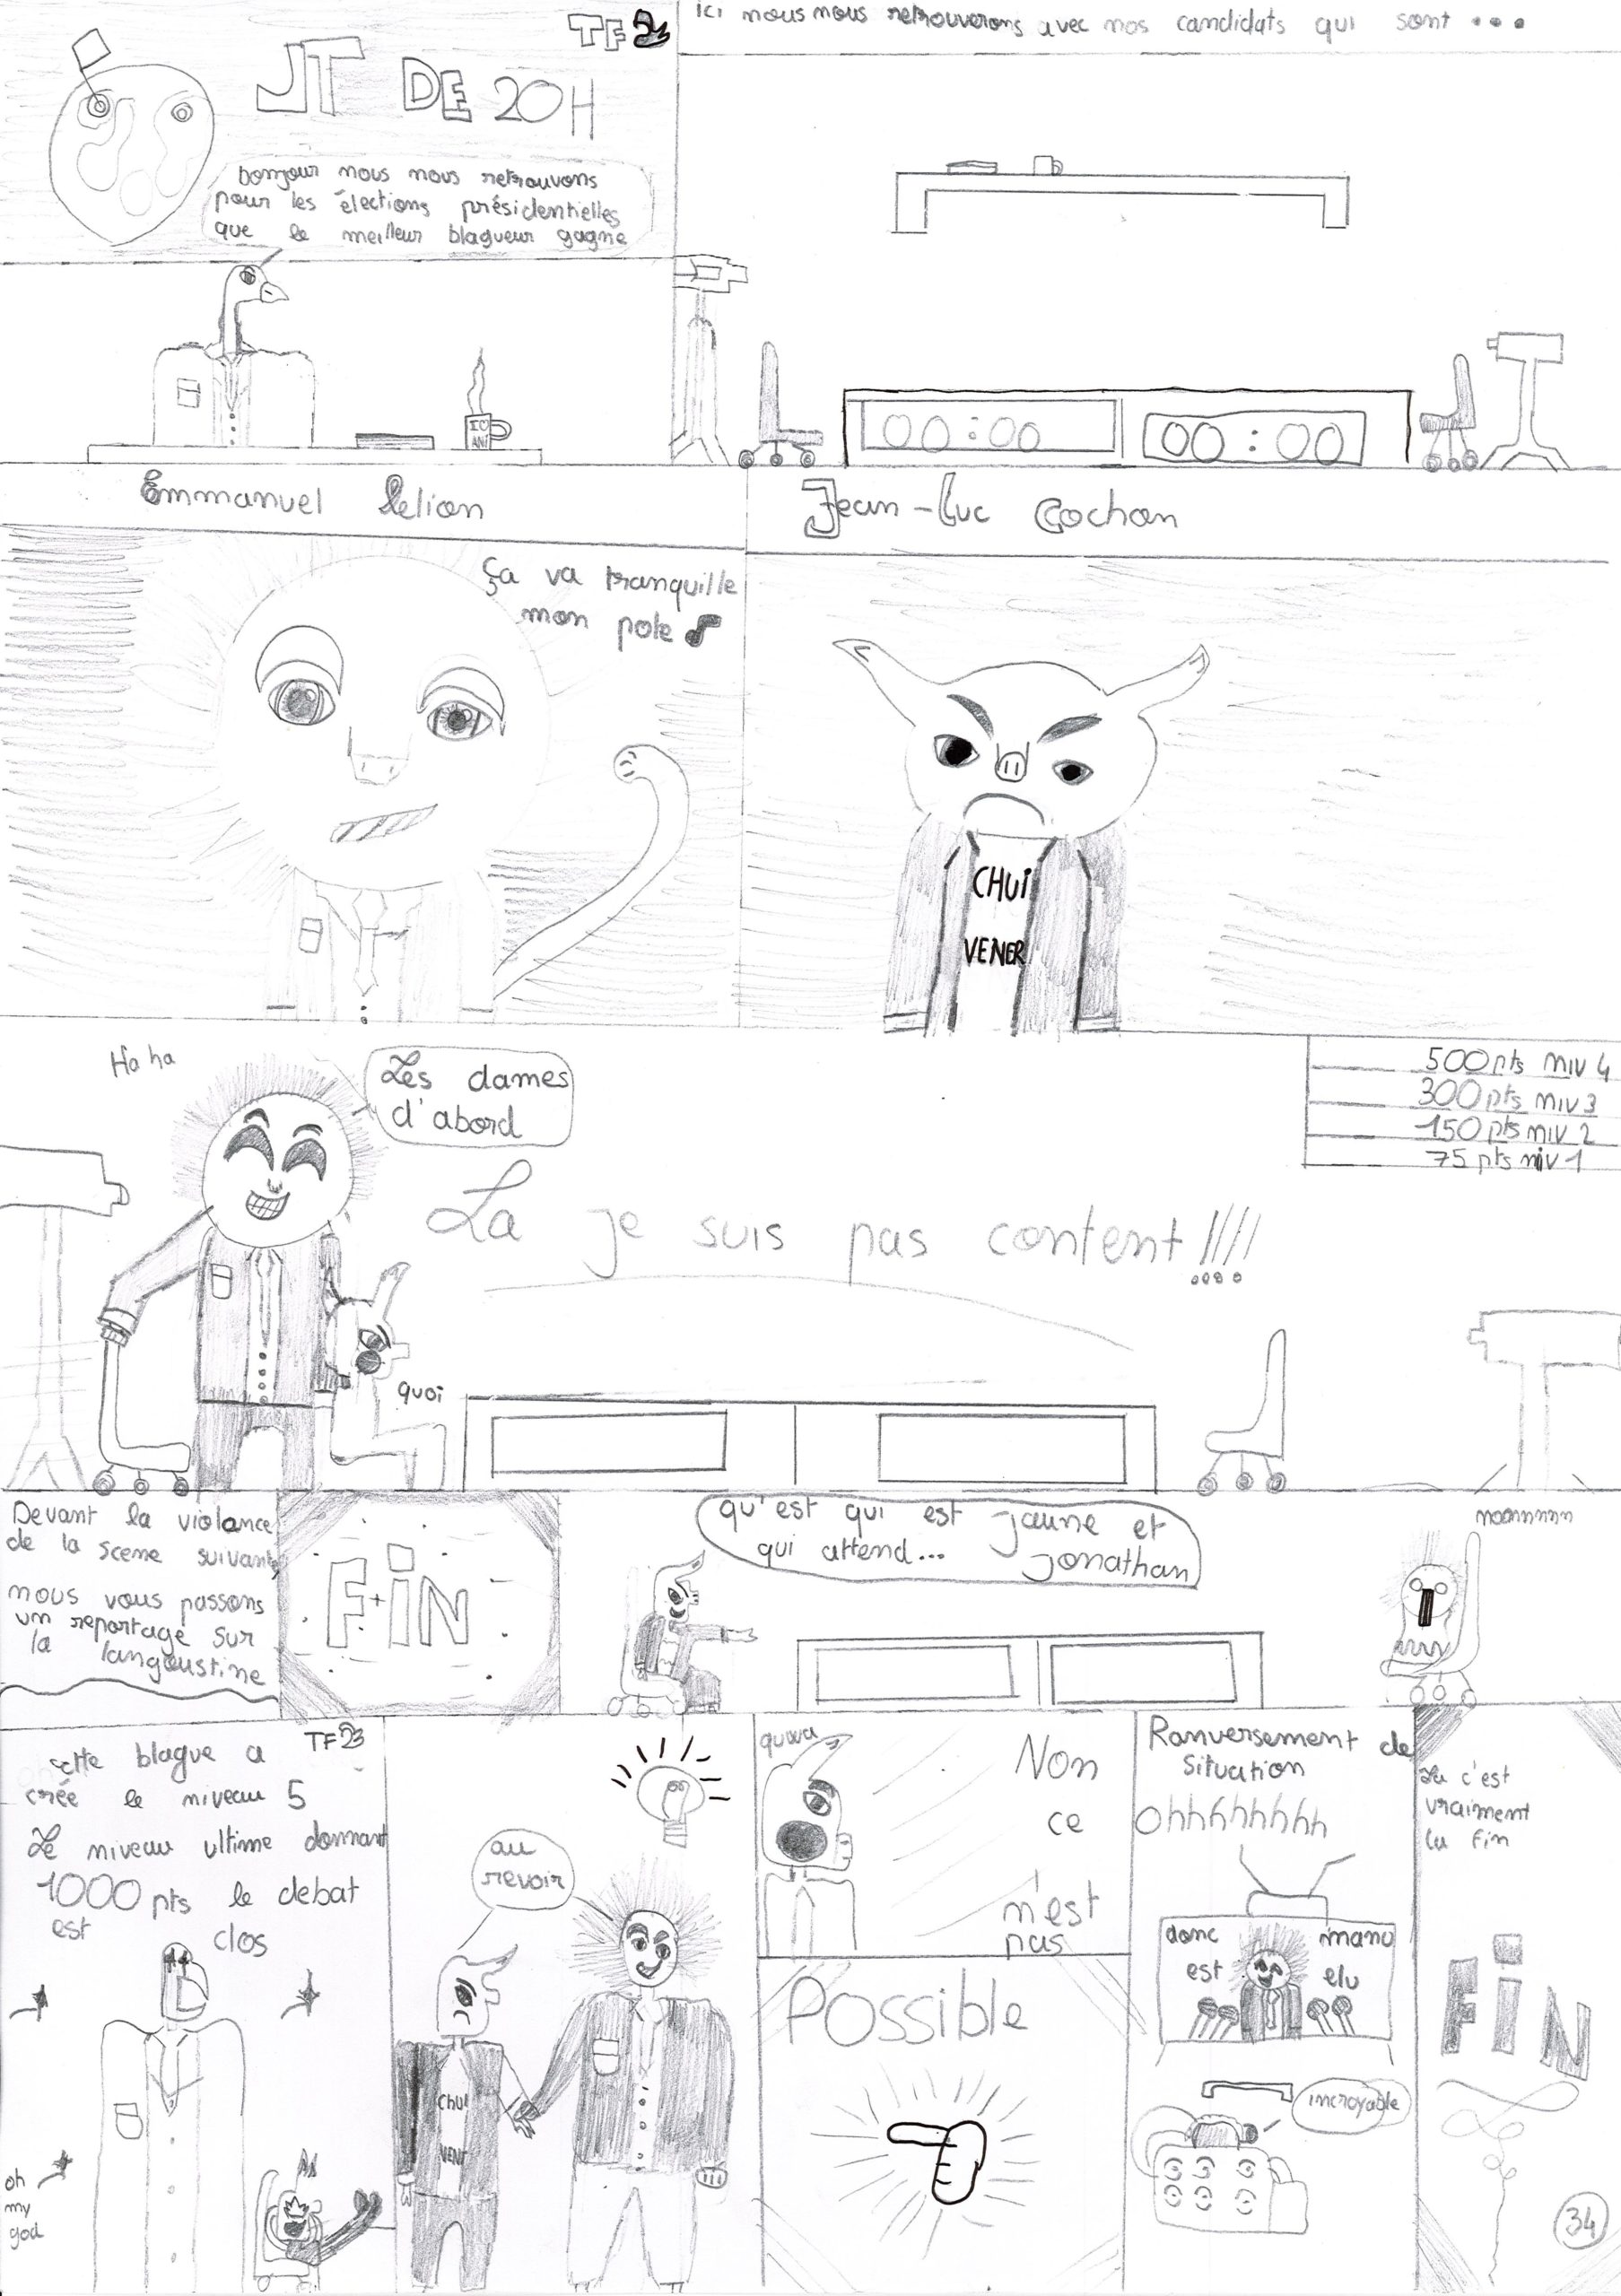 TF2
JT DE 20H
bonjour nous nous retrouvons
pour les élections présidentielles
que le meilleur blagueur gagne
I ♡
ANI
ici nous nous retrouverons avec nos candidats qui sont ...
00:00
00:00
Emmanuel Lelion
Ça va tranquille
mon pote ♪
Jean-Luc Cochon
CHUI
VENER
Ha ha
Les dames
d'abord
La je suis pas content!!!!
quoi
500 pts niv 4
300 pts niv 3
150 pts niv 2
75 pts niv 1
Devant la violance
de la scene suivante
nous vous passons
un reportage sur
la langoustine
FiN
qu'est qui est jaune et
qui attend... jonathan
noonnnnn
TF23
cette blague a
crée le niveau 5
Le niveau ultime donnant
1000 pts le debat
est clos
oh
my
god
au
revoir
Chui
VENE
quwa
Non
ce
n'est
pas
Possible
Ranversement de
situation
Ohhhhhhhh
donc manu
est elu
incroyable
La c'est
vraiment
la fin
FiN
34